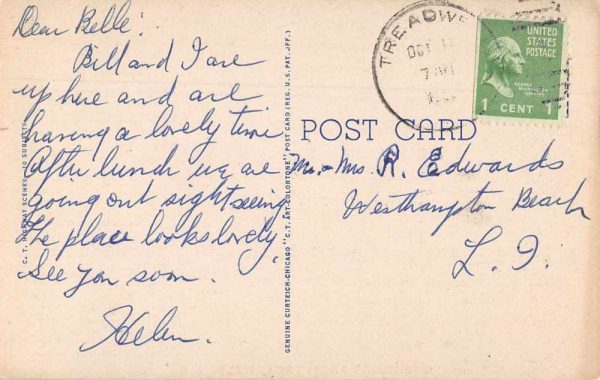 Dear Belle:
Bill and I are
up here and are
having a lovely time
After lunch we are
going out sight seeing
The place looks lovely.
See you soon.
Helen.
C. T. SCENES SUBJECTS
GENUINE CURTEICH-CHICAGO "C. T. ART-COLORTONE" POST CARD (REG. U. S. PAT. OFF.)
POST CARD
TREADW
OCT
7 AM
UNITED
STATES
POSTAGE
GEORGE
WASHINGTON
1 CENT 1
Mr. + Mrs. R. Edwards
Westhampton Beach
L. I.